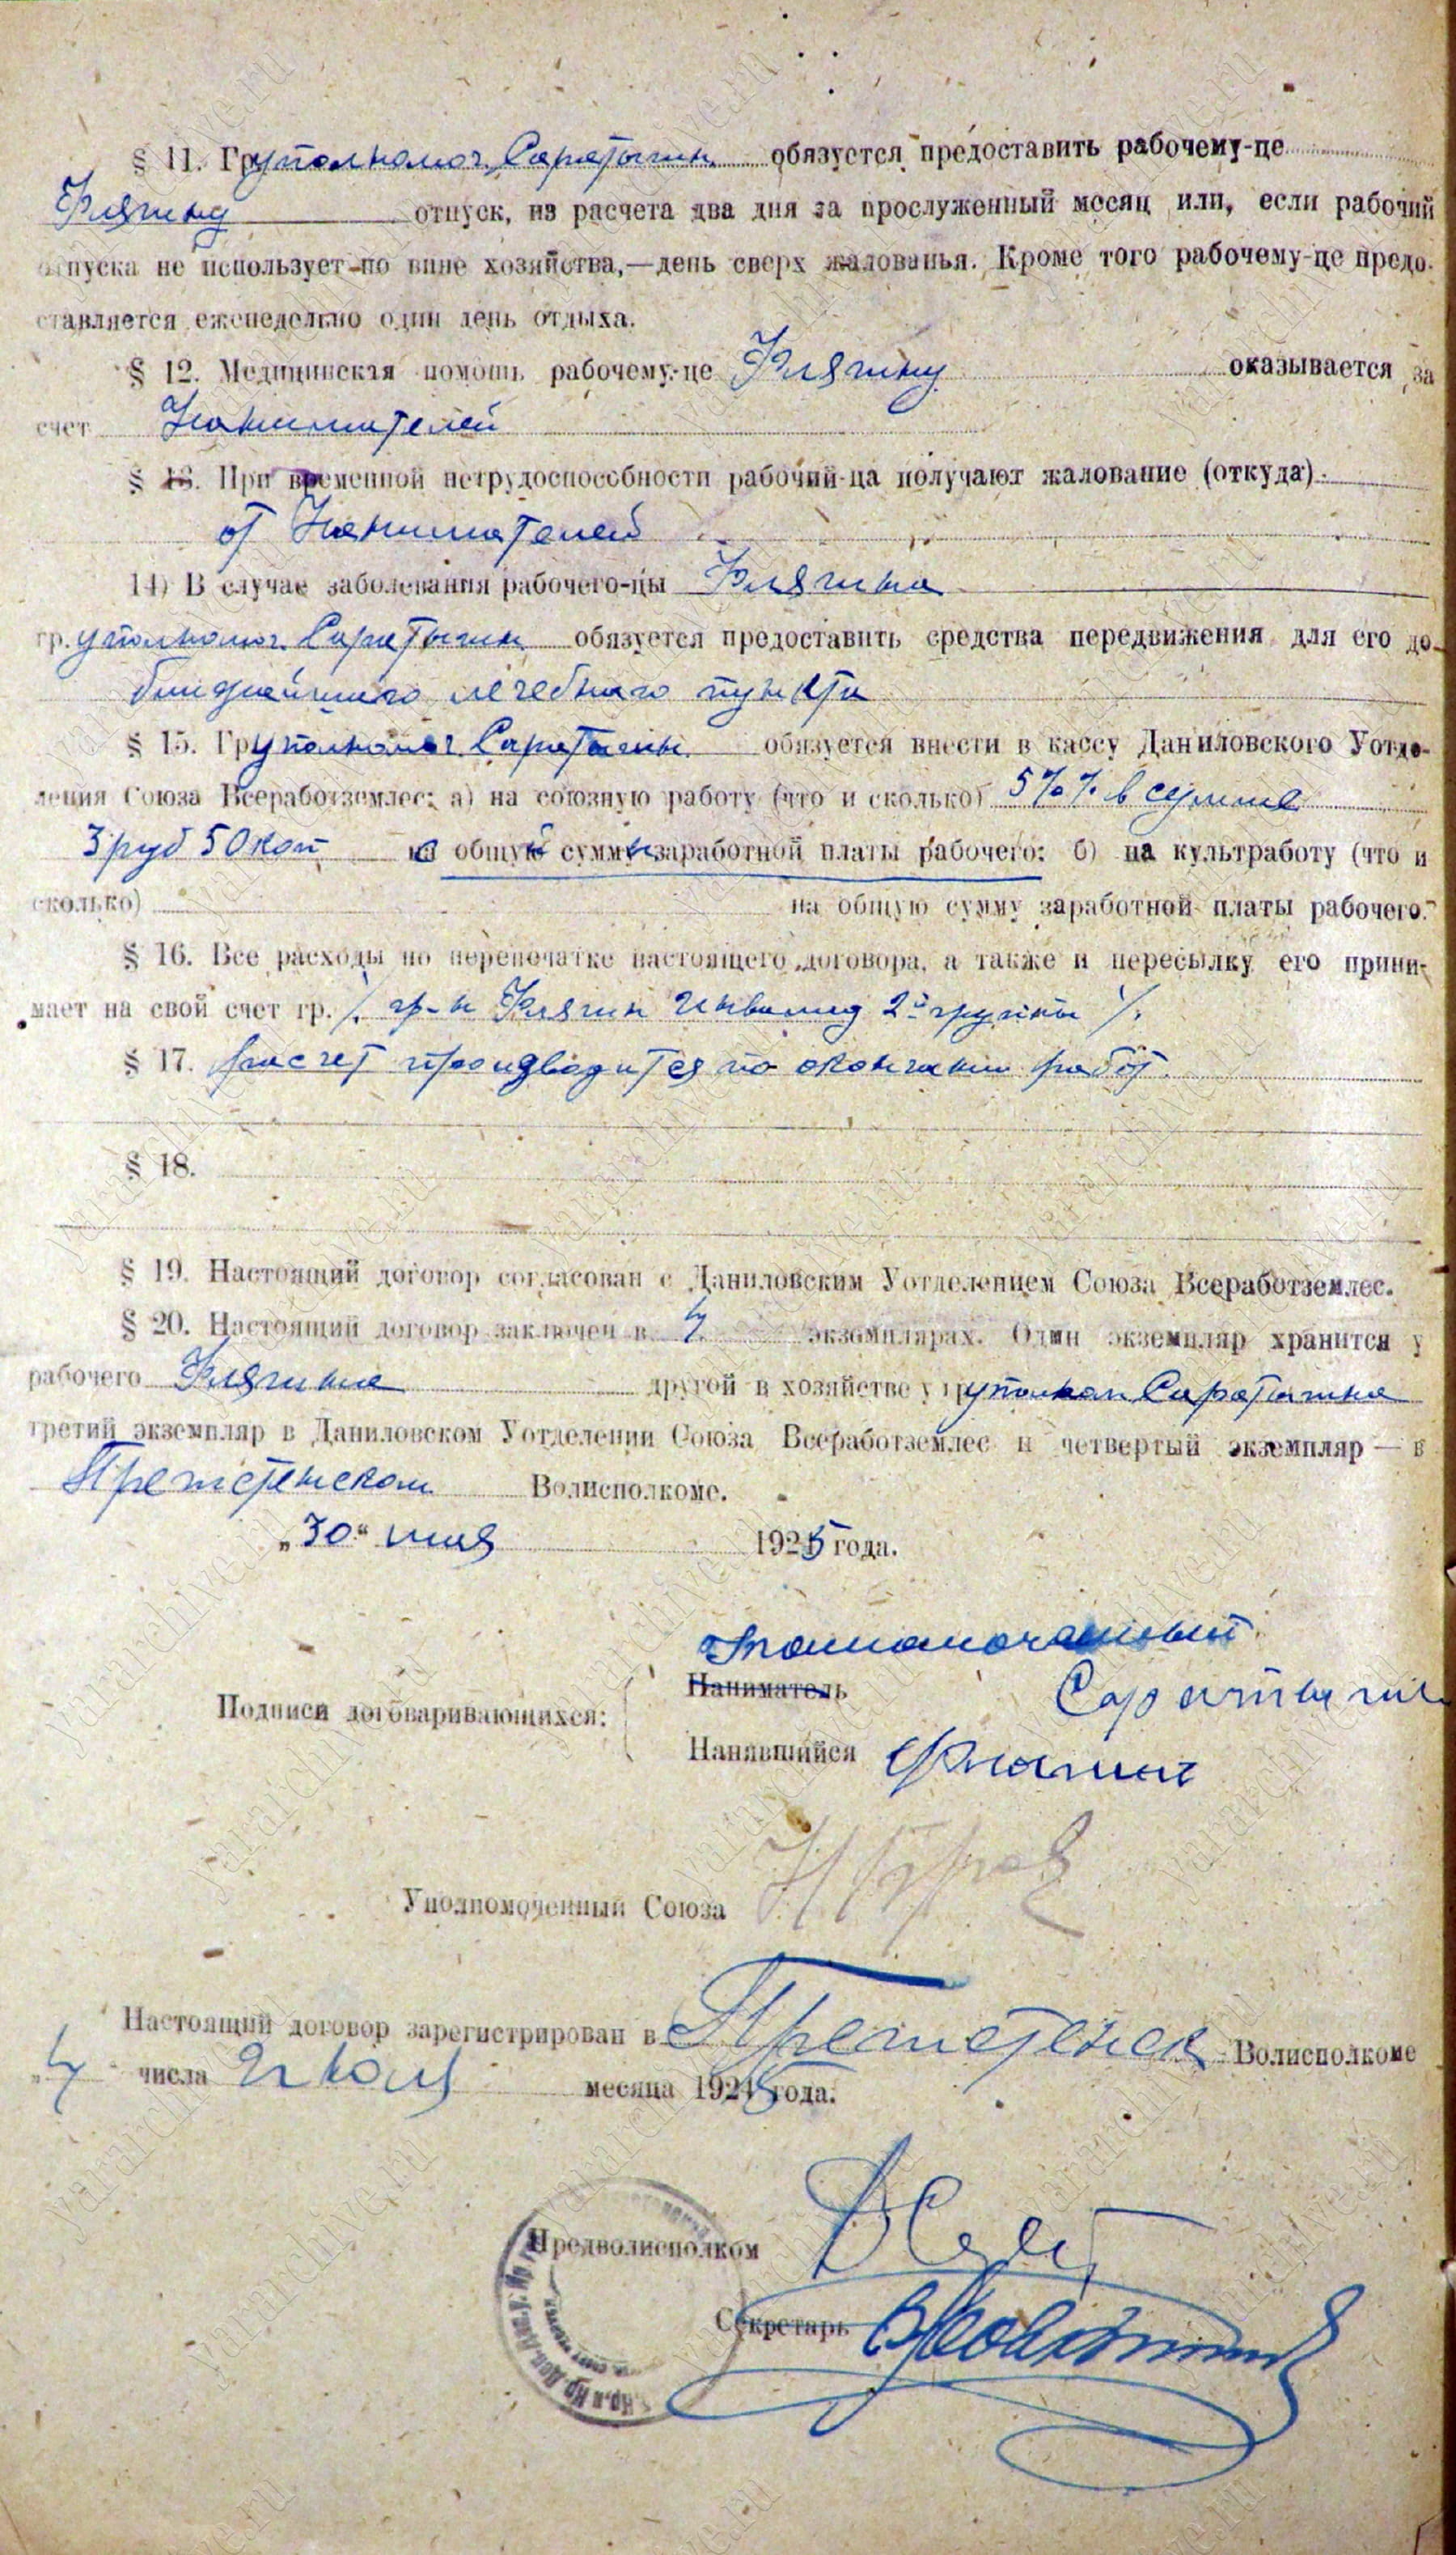 § 11. Гр уполномоч. Саратыгин обязуется предоставить рабочему-це
Клягину отпуск, из расчета два дня за прослуженный месяц или, если рабочий
отпуска не использует по вине хозяйства,—день сверх жалованья. Кроме того рабочему-це предо-
ставляется еженедельно один день отдыха.
§ 12. Медицинская помощь рабочему-це Клягину оказывается за
счет Нанимателей
§ 13. При временной нетрудоспособности рабочий-ца получают жалование (откуда)
от Нанимателей
14) В случае заболевания рабочего-цы Клягина
гр. уполномоч. Саратыгин обязуется предоставить средства передвижения для его до
ближайшего лечебного пункта
§ 15. Гр уполномоч Саратыгин обязуется внести в кассу Даниловского Уотде-
ления Союза Всеработземлес: а) на союзную работу (что и сколько) 5%% в сумме
3 руб 50 коп с общей суммы заработной платы рабочего: б) на культработу (что и
сколько) на общую сумму заработной платы рабочего.
§ 16. Все расходы по перепечатке настоящего договора, а также и пересылку его прини-
мает на свой счет гр. /. гр-н Клягин Инвалид 2й группы /.
§ 17. расчет производится по окончании работ.
§ 18.
§ 19. Настоящий договор согласован с Даниловским Уотделением Союза Всеработземлес.
§ 20. Настоящий договор заключен в 4 экземплярах. Один экземпляр хранится у
рабочего Клягина другой в хозяйстве у гр уполном Саратыгина
третий экземпляр в Даниловском Уотделении Союза Всеработземлес и четвертый экземпляр — в
Пречистенском Волисполкоме.
„30" мая 1925 года.
Уполномоченный
Наниматель Саратыгин
Подписи договаривающихся:
Нанявшийся Клягин
Уполномоченный Союза
Настоящий договор зарегистрирован в Пречистенск Волисполкоме
„4" числа Июля месяца 1925 года.
Предволисполком
Секретарь